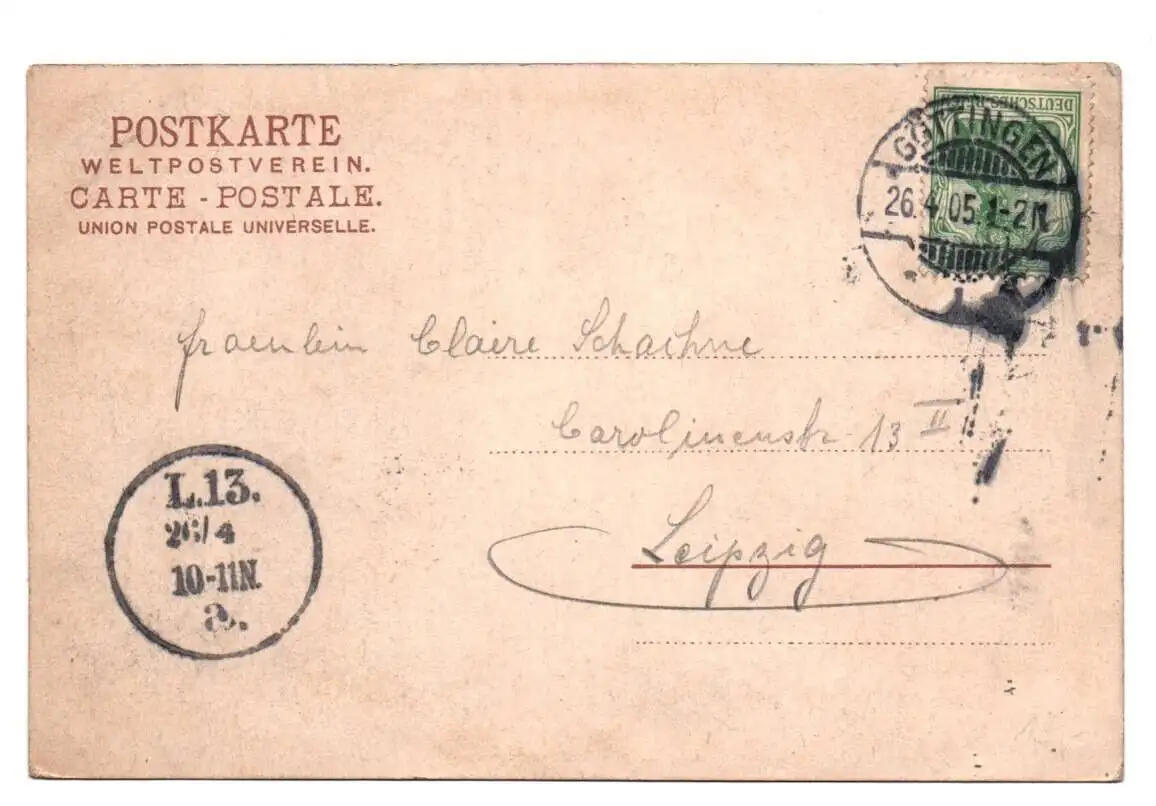 POSTKARTE
WELTPOSTVEREIN.
CARTE - POSTALE.
UNION POSTALE UNIVERSELLE.
DEUTSCHES REICH
GÖTTINGEN
26.4.05.1-2N
fraeulein Claire Schachne
Carolinenstr 13 II
Leipzig
L.13.
26/4
10-11N.
a.